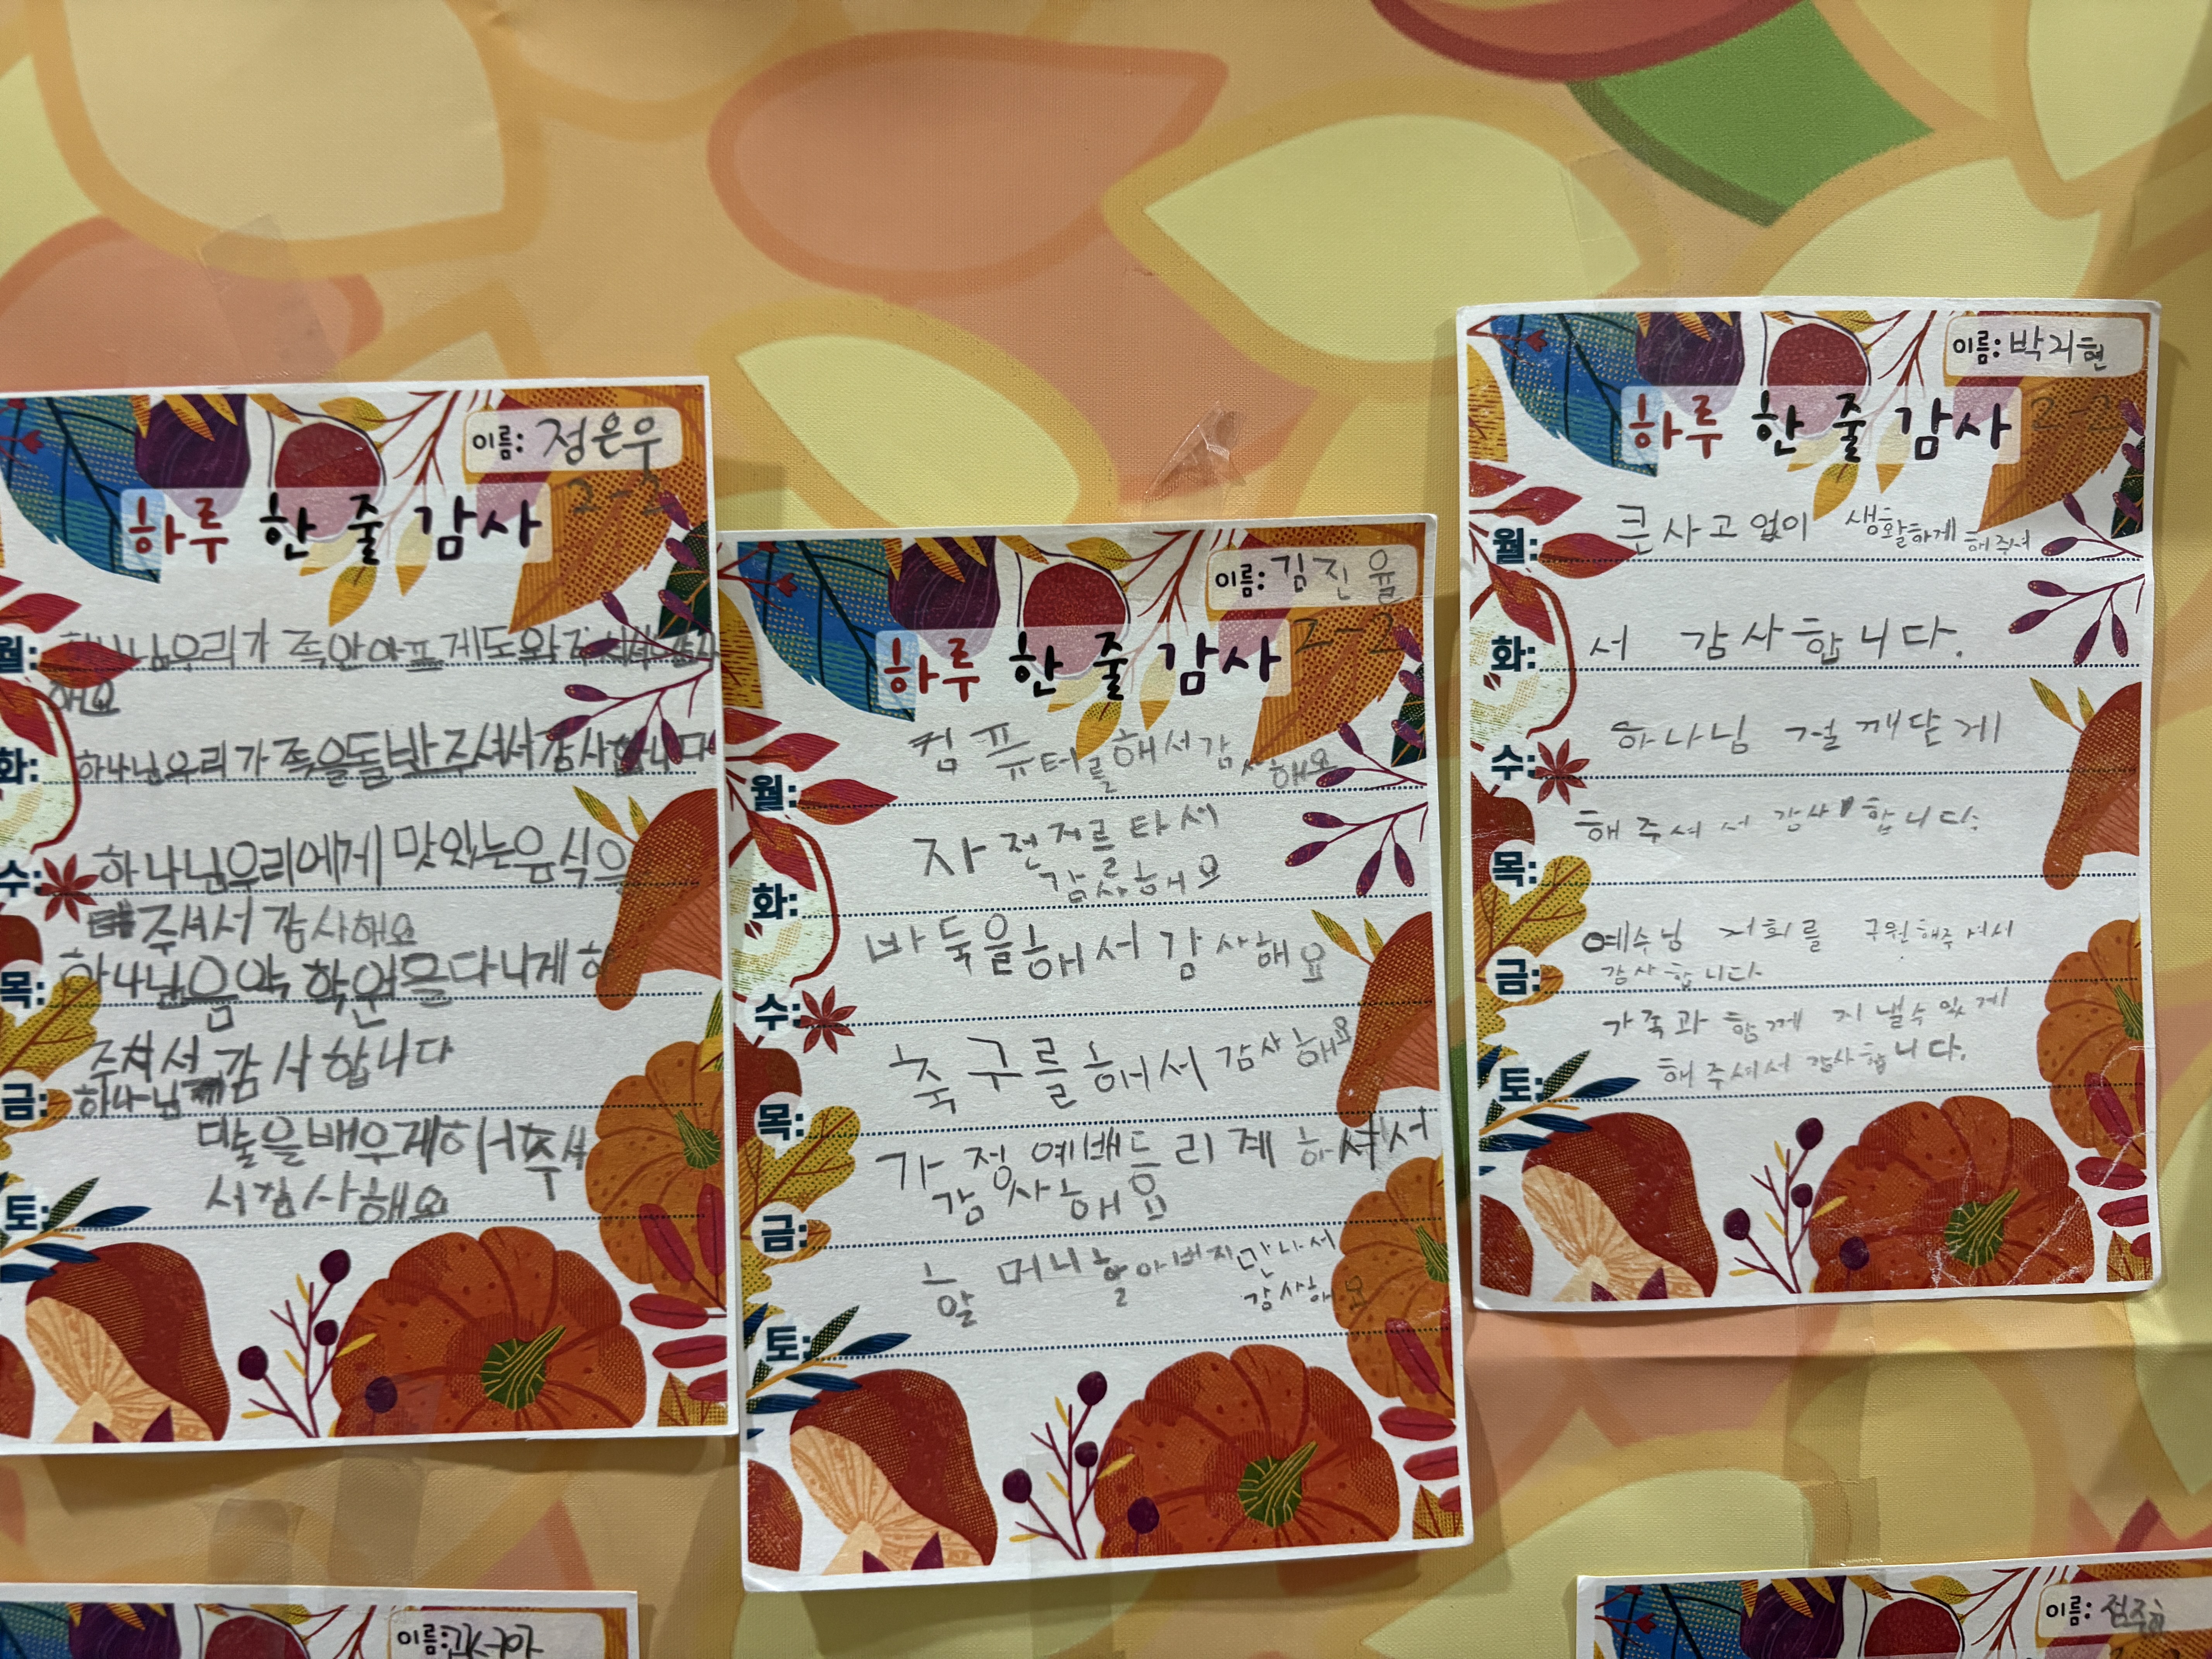 이름: 정은우
2-2
하루 한 줄 감사
월: 하나님우리가 족안아프게도와주셔서감사
해요
화: 하나님우리가족을돌봐주셔서감사합니다
수: 하나님우리에게 맛있는음식으
주셔서 감사해요
목: 하나님음악 학원을다니게 하
주셔서 감사합니다
금: 하나님
미술을배우게해주셔
토: 서감사해요
이름: 김진율
2-2
하루 한 줄 감사
월: 컴퓨터를해서감사해요
화: 자전저르타서
감사해요
수: 바둑을해서감사해요
목: 축구를해서감사해요
금: 가정예배드리게하셔서
감사해요
토: 할머니할아버지만나서
감사해요
이름: 박지현
2-2
하루 한 줄 감사
월: 큰사고없이 생활하게해주셔
화: 서 감사합니다.
수: 하나님 걸깨닫게
목: 해주셔서 감사합니다.
금: 예수님 저희를 구원해주셔서
감사합니다
토: 가족과 함께 지낼수있게
해주셔서 감사합니다.
이름:
이름: